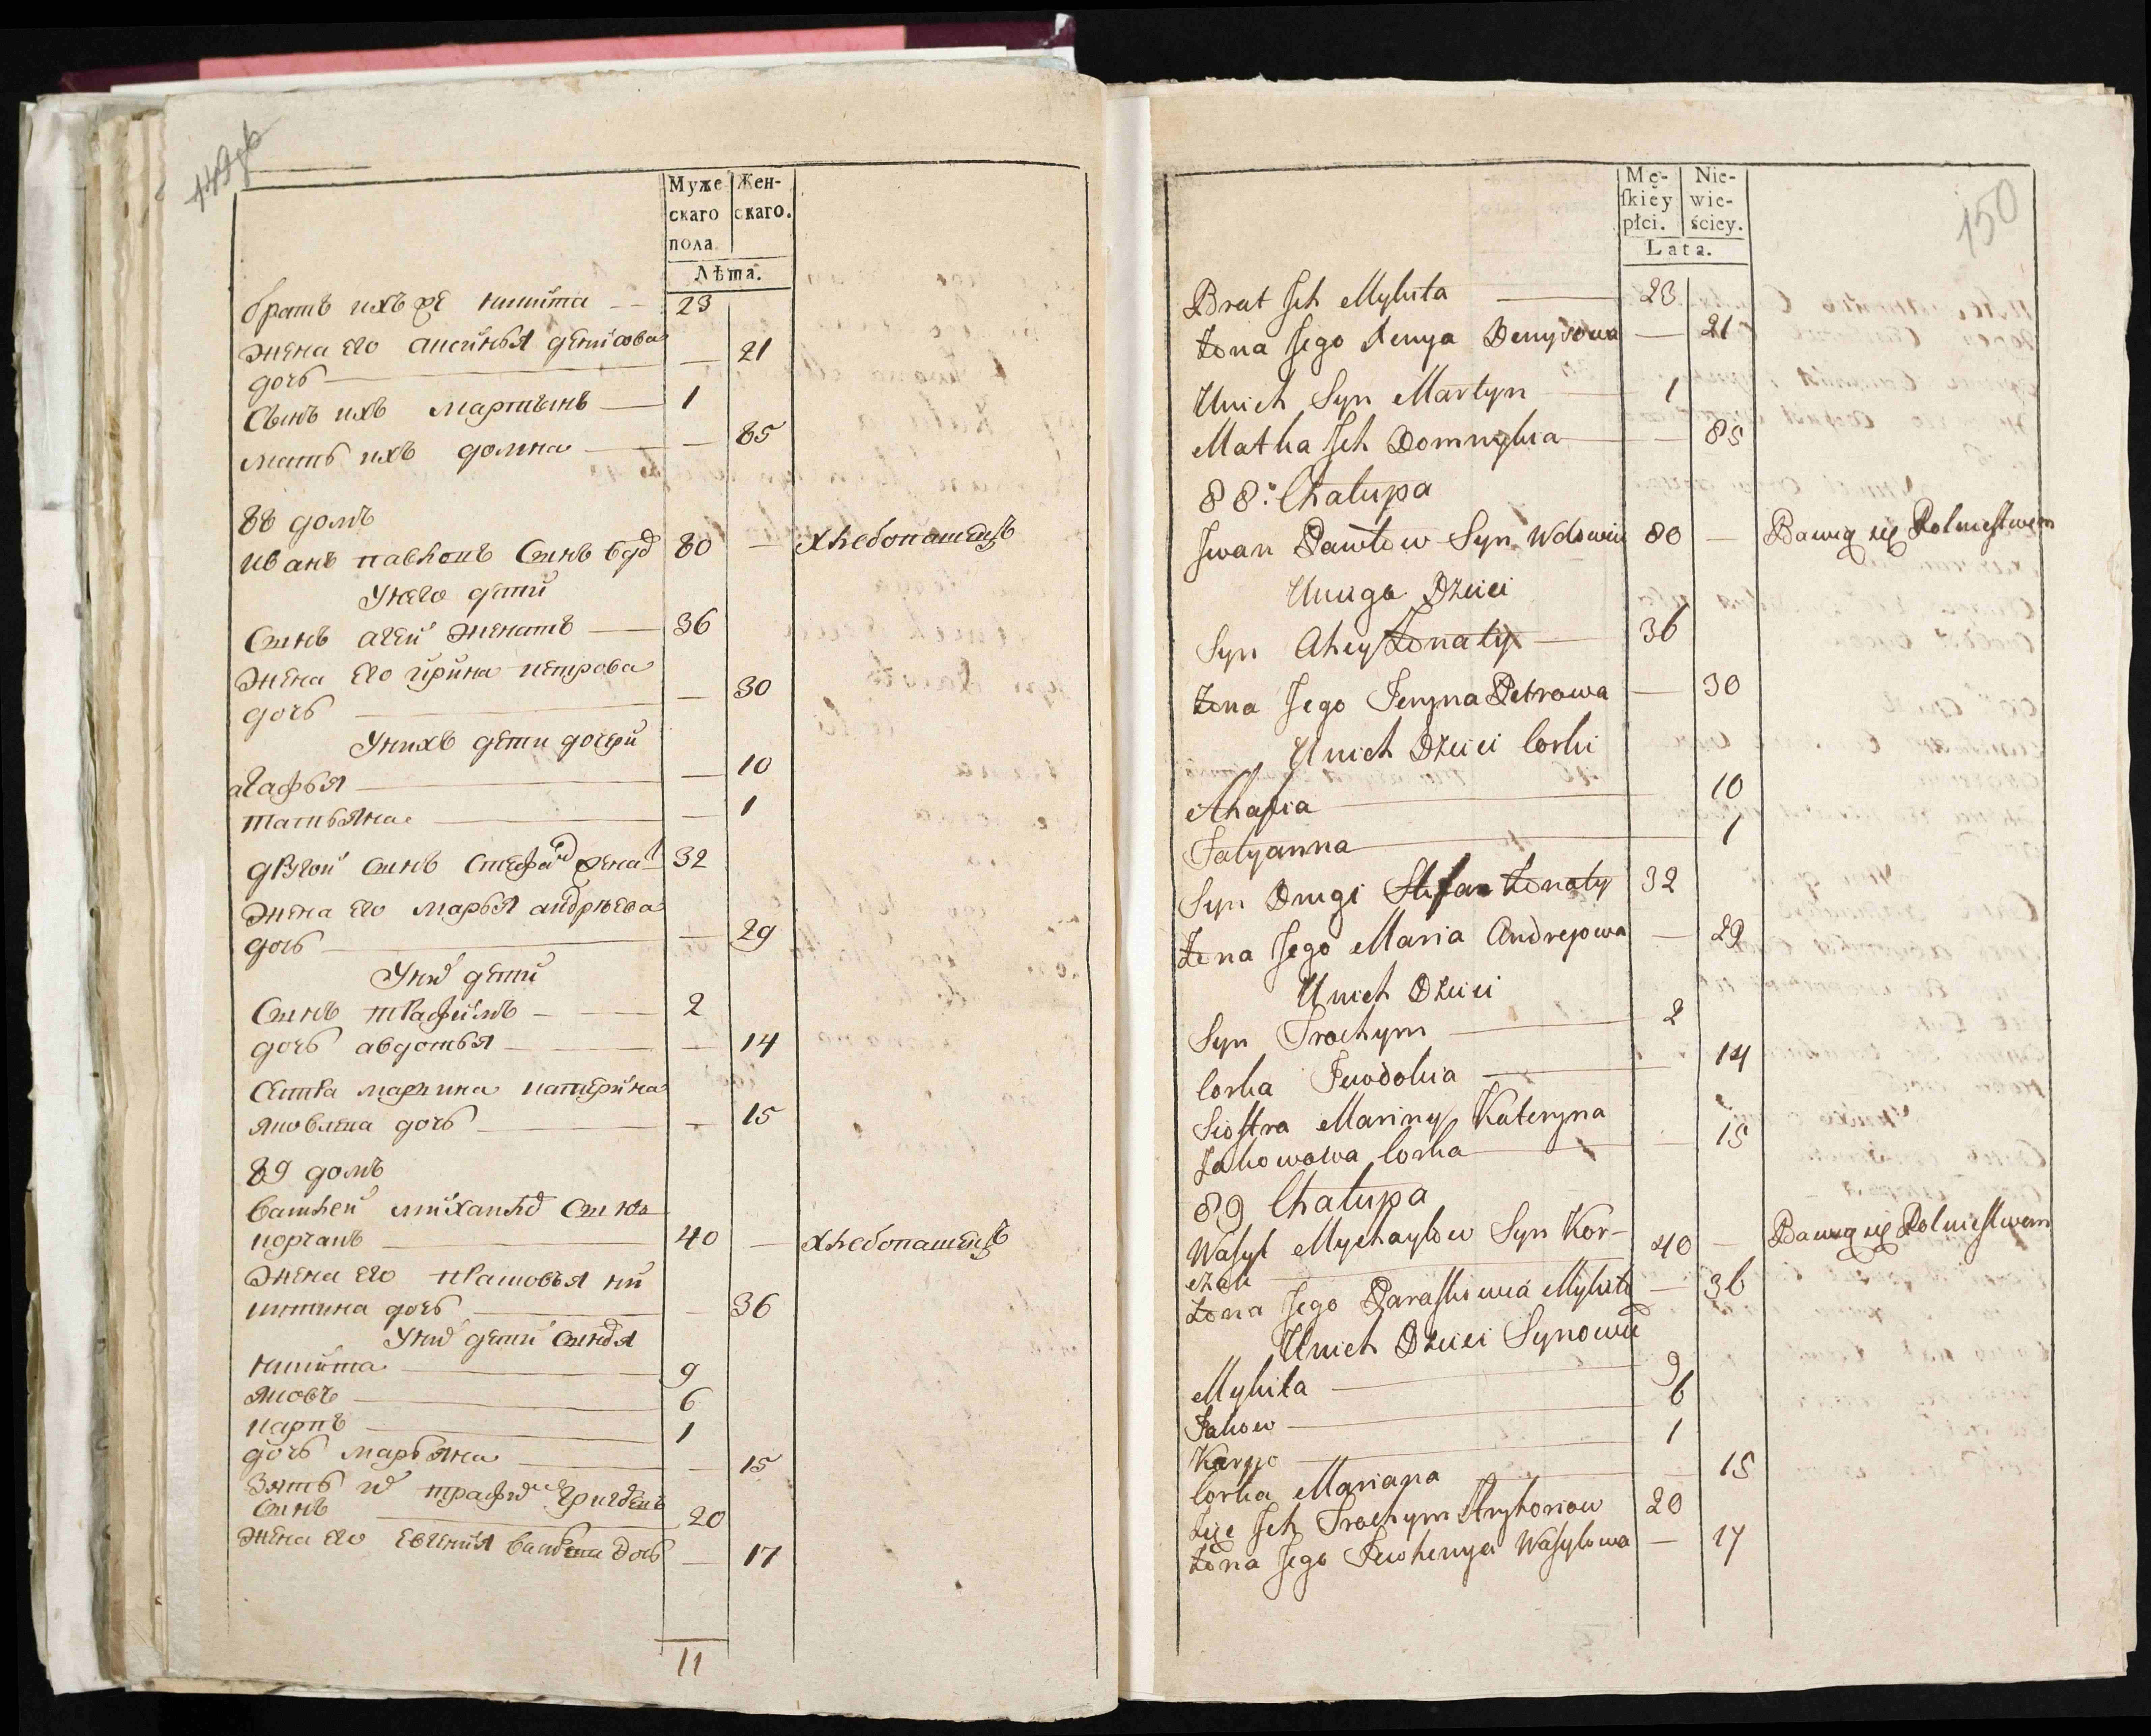 149 об
Муже
скаго
пола
Жен-
скаго.
Лѣта.
братъ ихъ же никита — 23
жена его аксинья денисова
дочь — — 21
Сынъ ихъ мартынъ — 1
мать ихъ домна — — 85
88 домъ
иванъ павловъ Сынъ вдов 80 — хлебопашецъ
Унего дети
Сынъ агей женатъ — 36
жена его ирина петрова
дочь — — 30
Унихъ дети дочери
агафья — — 10
татьяна — — 1
другой сынъ Стефан женат 32
жена его марья андрѣева
дочь — — 29
Уних дети
Сынъ трафимъ — 2
дочь авдотья — — 14
Сестра марины катерина
яковлева дочь — — 15
89 домъ
василей михайлов Сынъ
корчакъ — 40 — хлебопашецъ
жена его прасковья ни
китина дочь — — 36
Уних дети сыновья
никита — 9
яковъ — 6
карпъ — 1
дочь марьяна — — 15
Зять их трафим григорьевъ
сынъ — 20
жена его евгения васильева дочь — 17
11
150
Mę-
ſkiey
płci.
Nie-
wie-
ściey.
Lata.
Brat Jch Mykita — 23
żona Jego Xenya Denysowa — 21
Unich Syn Martyn — 1
Matka Jch Domnykia — — 85
88: Chałupa
Jwan Pawłow Syn Wdowiec 80 — Bawią się Rolnictwem
Uniego Dzieci
Syn Ahey żonaty — 36
żona Jego Jeryna Petrowa — 30
Unich Dzieci Corki
Ahafia — 10
Tatyanna — 1
Syn Drugi Stefan żonaty 32
żona Jego Maria Andrejowa — 29
Unich Dzieci
Syn Trochym — 2
Corka Jewdokia — 14
Siostra Mariny Kateryna
Jakowowa Corka — 15
89 Chałupa
Wasyl Mychayłow Syn Kor-
czak — 40 — Bawią się Rolnictwem
żona Jego Paraskiewia Mykito — 36
Unich Dzieci Synowie
Mykita — 9
Jakow — 6
Karpo — 1
Corka Mariana — 15
Zięć Jch Trochym Hryhoriow 20
żona Jego Jewhenya Wasylowa — 17